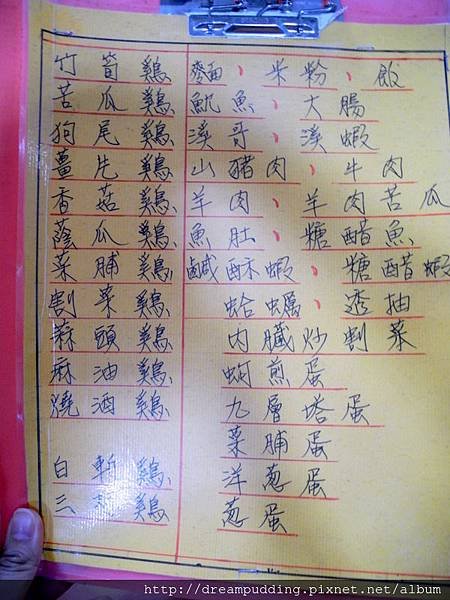 竹筍鷄 麵、米粉、飯
苦瓜鷄 魷魚、大腸
狗尾鷄 溪哥、溪蝦
薑片鷄 山豬肉、牛肉
香菇鷄 羊肉、羊肉苦瓜
蔭瓜鷄 魚肚、糖醋魚
菜脯鷄 鹹酥蝦、糖醋蝦
割菜鷄 蛤蠣、透抽
蒜頭鷄 內臟炒割菜
麻油鷄 蚵煎蛋
燒酒鷄 九層塔蛋
菜脯蛋
白斬鷄 洋葱蛋
三杯鷄 葱蛋
http://dreampudding.pixnet.net/album